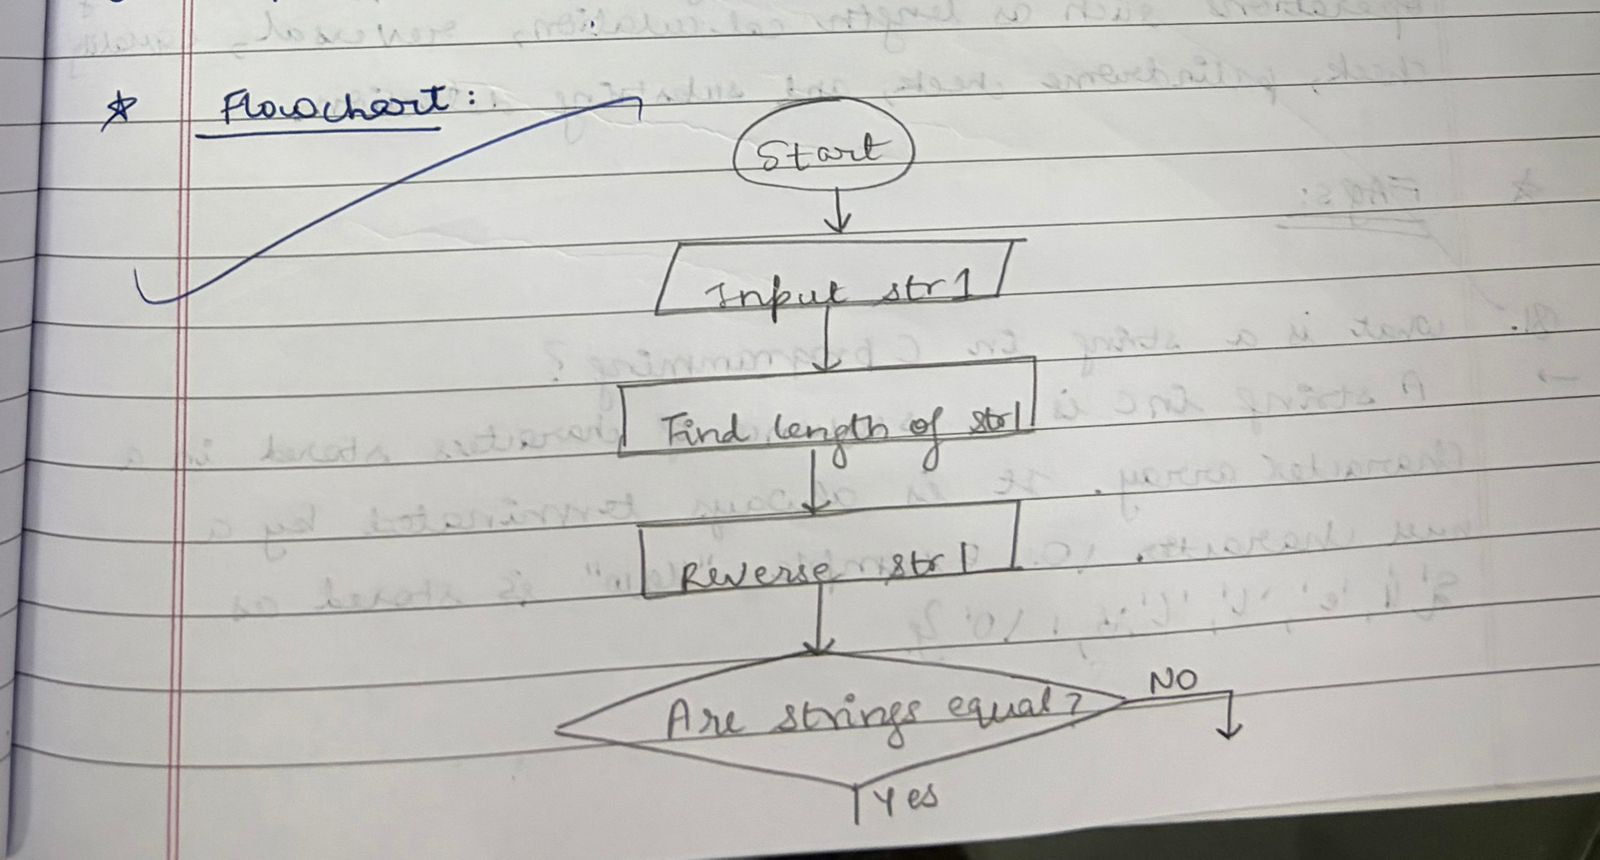 * Flowchart :
Start
Input str1
Find length of str1
Reverse str1
Are strings equal?
NO
Yes